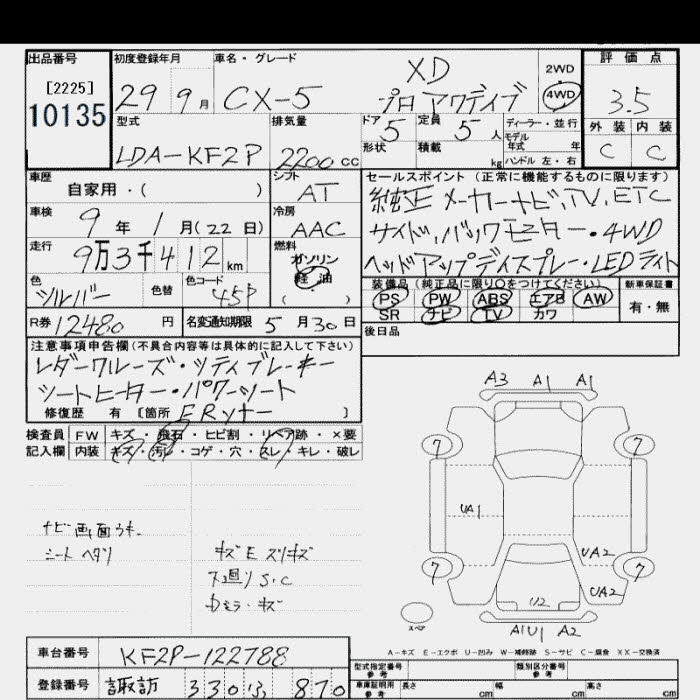 出品番号
[2225]
10135
初度登録年月
29 9月
車名・グレード
CX-5
XD
プロアクティブ
2WD
4WD
評価点
3.5
型式
LDA-KF2P
排気量
2200cc
ドア 5
定員 5人
形状
積載 kg
ディーラー・並行
モデル年式 年
ハンドル 左・右
外装 内装
C C
車歴
自家用・( )
シフト
AT
車検
9年 1月(22日)
冷房
AAC
走行
9万3千412km
燃料
ガソリン
軽油
( )
色
シルバー
色替
色コード
45P
R券 12480円
名変通知期限 5月30日
セールスポイント(正常に機能するものに限ります)
純正メーカーナビ、TV、ETC
サイド、バックモニター・4WD
ヘッドアップディスプレー・LEDライト
装備品(純正品に限り○をつけてください)
PS PW ABS エアB AW
SR ナビ TV カワ
新車保証書
有・無
後日品
注意事項申告欄(不具合内容等は具体的に記入して下さい)
レダークルーズ・シティブレーキー
シートヒーター・パワーシート
修復歴 有 [箇所 FRコナー ]
検査員記入欄
FW キズ・飛石・ヒビ割・リペア跡・×要
内装 キズ・汚レ・コゲ・穴・スレ・キレ・破レ
ナビ画面ウキ
シートヘタリ
キズEズリキズ
下廻りS.C
カミラ・キズ
A3 A1 A1
7 7
UA1
UA2
7 7
UA2
U2
A1U1 A2
スペア
A-キズ E-エクボ U-凹み W-補修跡 S-サビ C-腐食 XX-交換済
車台番号
KF2P-122788
登録番号
諏訪 330ふ 870
型式指定番号 参考
類別区分番号 参考
車庫証明用 参考
長さ cm
幅 cm
高さ cm